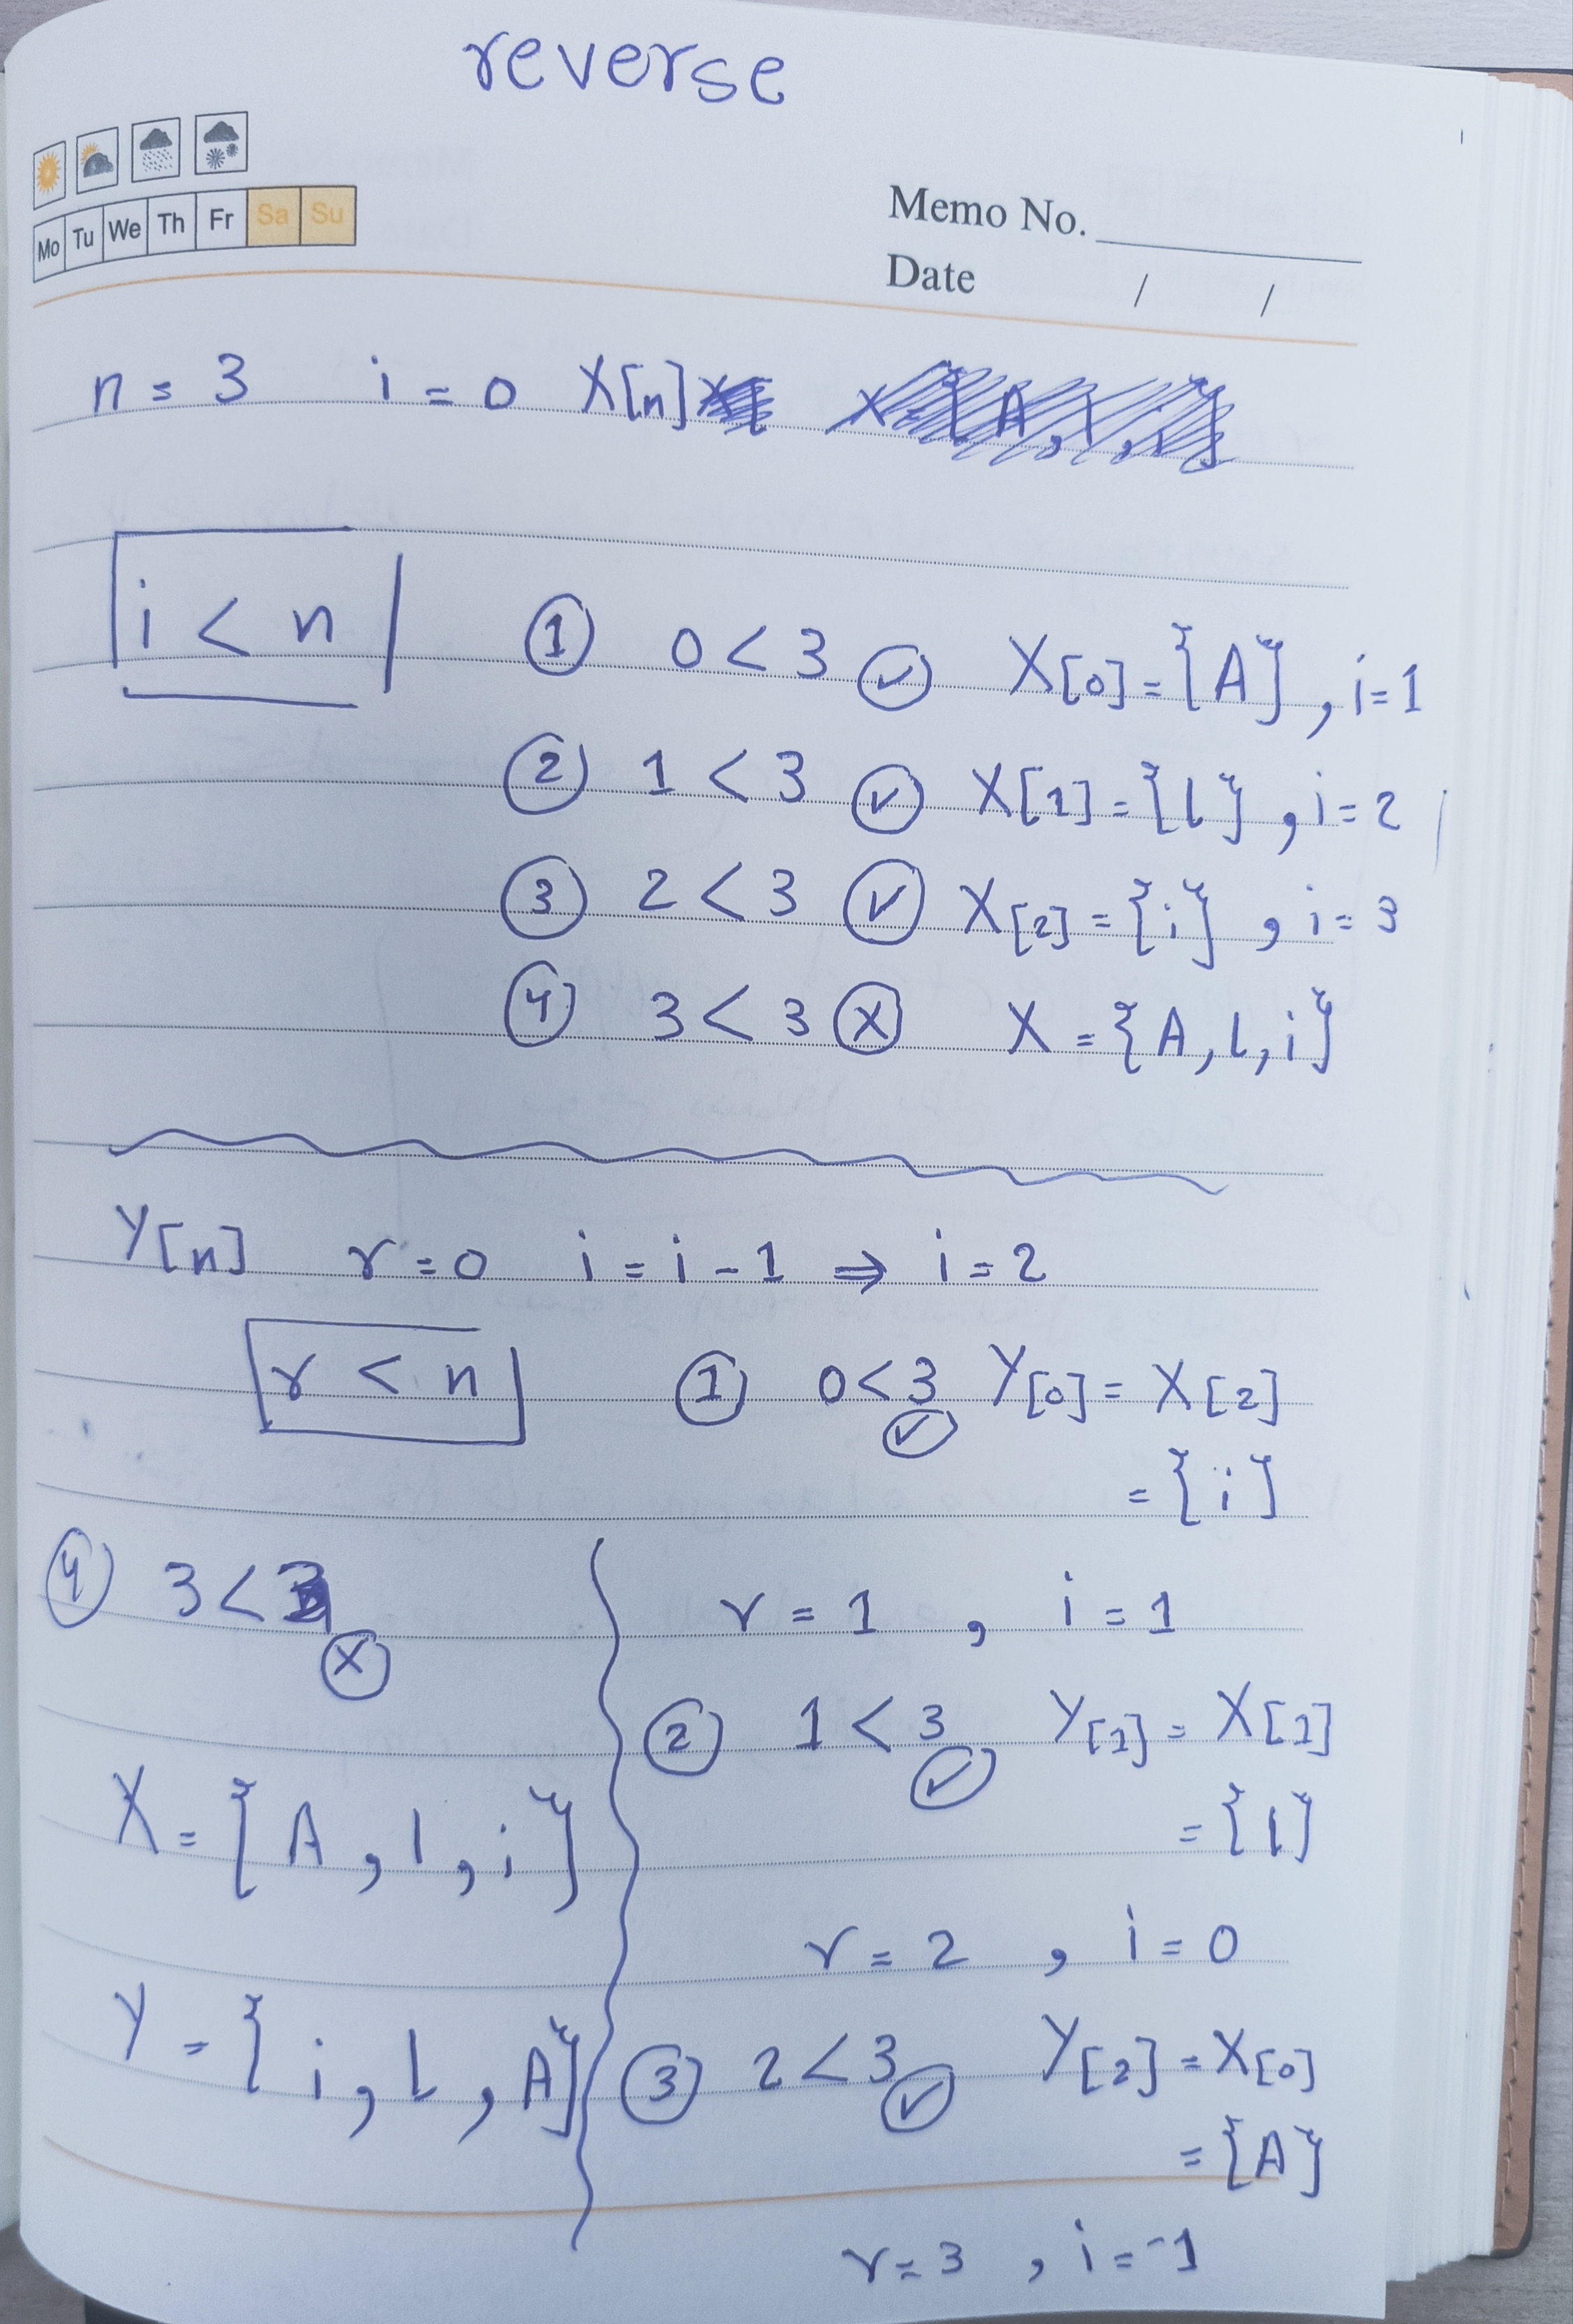 reverse
Mo Tu We Th Fr Sa Su
Memo No.
Date / /
n = 3 i = 0 X[n]
i < n ① 0 < 3 ✓ X[0] = {A}, i=1
② 1 < 3 ✓ X[1] = {l}, i=2
③ 2 < 3 ✓ X[2] = {i}, i=3
④ 3 < 3 X X = {A, l, i}
Y[n] r=0 i = i-1 ⇒ i=2
r < n ① 0<3 ✓ Y[0] = X[2]
= {i}
r = 1, i = 1
② 1 < 3 ✓ Y[1] = X[1]
= {l}
r = 2, i = 0
③ 2 < 3 ✓ Y[2] = X[0]
= {A}
r = 3, i = -1
④ 3 < 3 X
X = {A, l, i}
Y = {i, l, A}